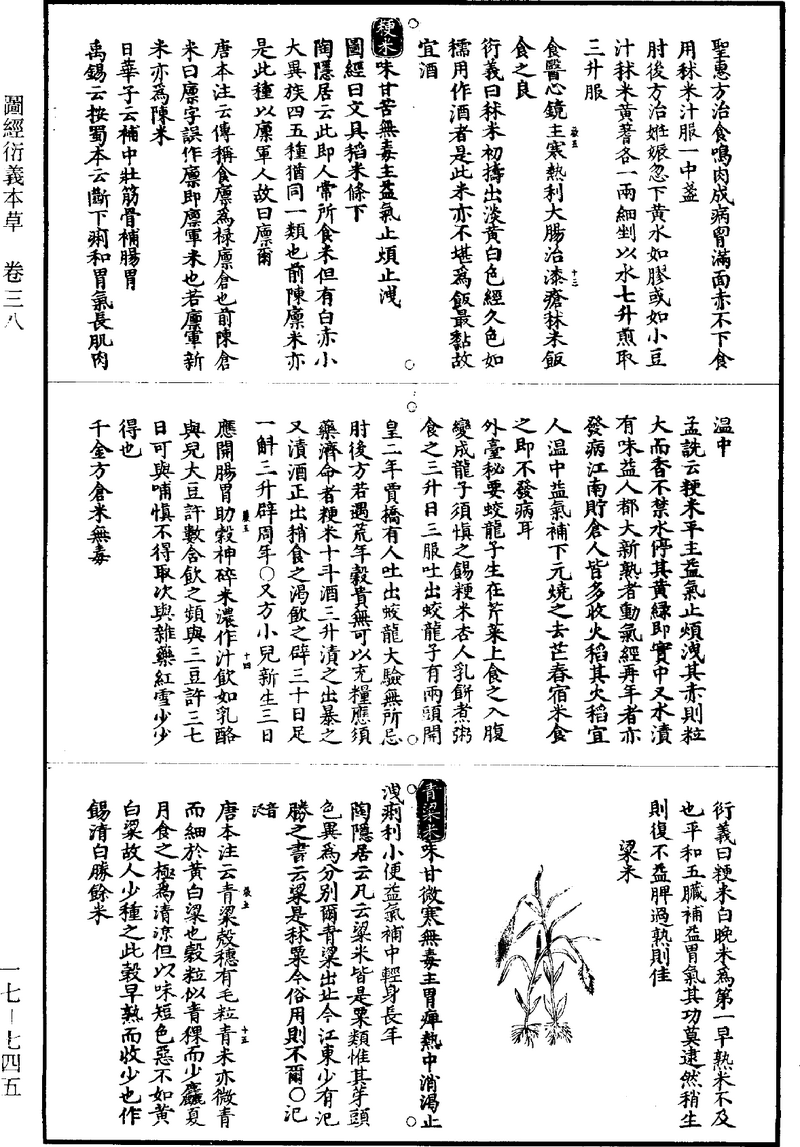 聖惠方治食鴨肉成病胷滿面赤不下食
用秫米汁服一中盞
肘後方治姙娠忽下黄水如膠或如小豆
汁秫米黄蓍各一兩細剉以水七升煎取
三升服
食醫心鏡主寒熱利大腸治漆瘡秫米飯
食之良
衍義曰秫米初擣出淡黄白色經久色如
糯用作酒者是此米亦不堪爲飯最黏故
宜酒
粳米味甘苦無毒主益氣止煩止洩
圖經曰文具稻米條下
陶隱居云此即人常所食米但有白赤小
大異族四五種猶同一類也前陳廩米亦
是此種以廩軍人故曰廩爾
唐本注云傳稱食廩爲禄廩倉也前陳倉
米曰廩字誤作廩即廩軍米也若廩軍新
米亦爲陳米
日華子云補中壯筋骨補腸胃
禹錫云按蜀本云斷下痢和胃氣長肌肉
温中
孟詵云粳米平主益氣止煩洩其赤則粒
大而香不禁水停其黄綠即實中又水漬
有味益人都大新熟者動氣經再年者亦
發病江南貯倉人皆多收火稻其火稻宜
人温中益氣補下元燒之去芒春宿米食
之即不發病耳
外臺秘要蛟龍子生在芹菜上食之入腹
變成龍子須慎之餳粳米杏人乳餅煮粥
食之三升日三服吐出蛟龍子有兩頭開
皇二年賈橋有人吐出蛟龍大驗無所忌
肘後方若遇荒年穀貴無可以充糧應須
藥濟命者粳米十斗酒三升漬之出暴之
又漬酒正出稍食之渴飲之辟三十日足
一斛三升辟周年〇又方小兒新生三日
應開腸胃助穀神碎米濃作汁飲如乳酪
與兒大豆許數合飲之頻與三豆許三七
日可與哺慎不得取次與雜藥紅雪少少
得也
千金方倉米無毒
衍義曰粳米白晚米爲第一早熟米不及
也平和五臟補益胃氣其功莫逮然稍生
則復不益脾過熟則佳
粱米
青粱米味甘微寒無毒主胃痺熱中消渴止
洩痢利小便益氣補中輕身長年
陶隱居云凡云粱米皆是粟類惟其芽頭
色異爲分別爾青粱出北今江東少有氾
勝之書云粱是秫粟今俗用則不爾〇氾
音汎
唐本注云青粱殻穗有毛粒青米亦微青
而細於黄白粱也穀粒似青稞而少麤夏
月食之極爲清涼但以味短色惡不如黄
白粱故人少種之此穀早熟而收少也作
餳清白勝餘米
圖經衍義本草 卷三八
一七—七四五